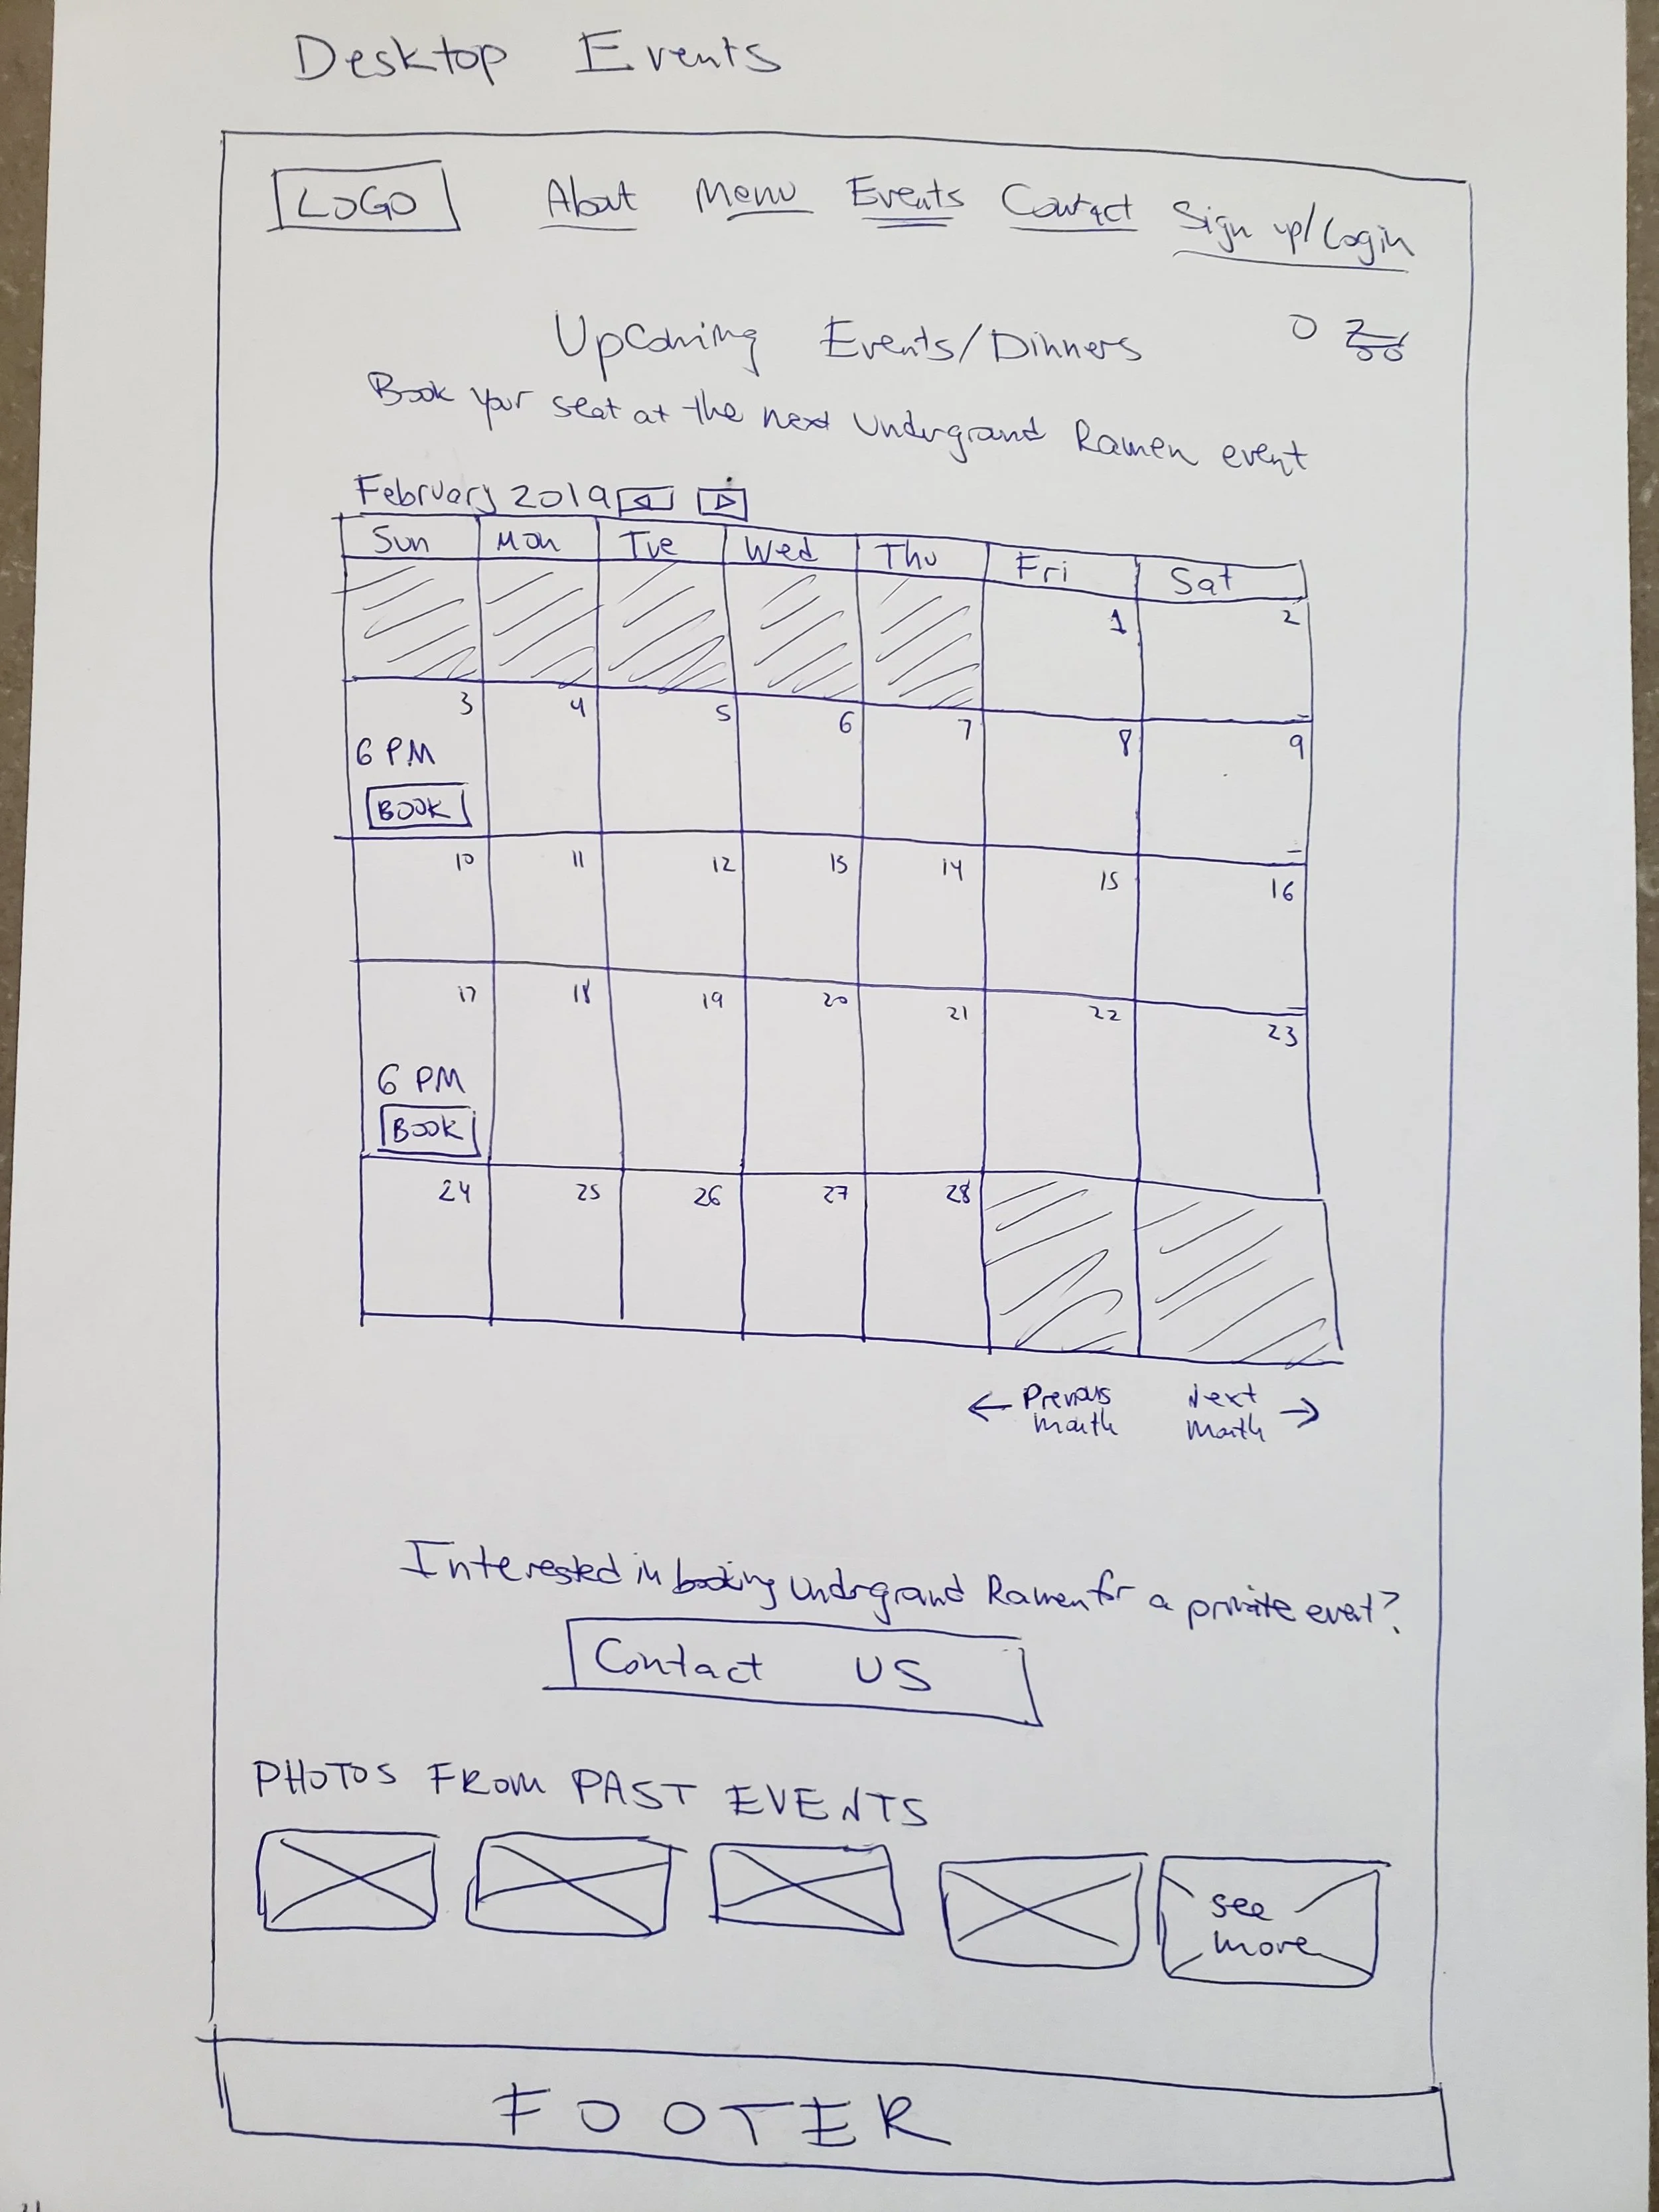 Desktop Events
LOGO About Menu Events Contact Sign up/Login
Upcoming Events/Dinners 0
Book Your seat at the next Underground Ramen event
February 2019
Sun Mon Tue Wed Thu Fri Sat
1 2
3 4 5 6 7 8 9
6 PM
BOOK
10 11 12 13 14 15 16
17 18 19 20 21 22 23
6 PM
BOOK
24 25 26 27 28
← Previous Next →
month Month
Interested in booking Underground Ramen for a private event?
Contact US
PHOTOS FROM PAST EVENTS
see
more
FOOTER